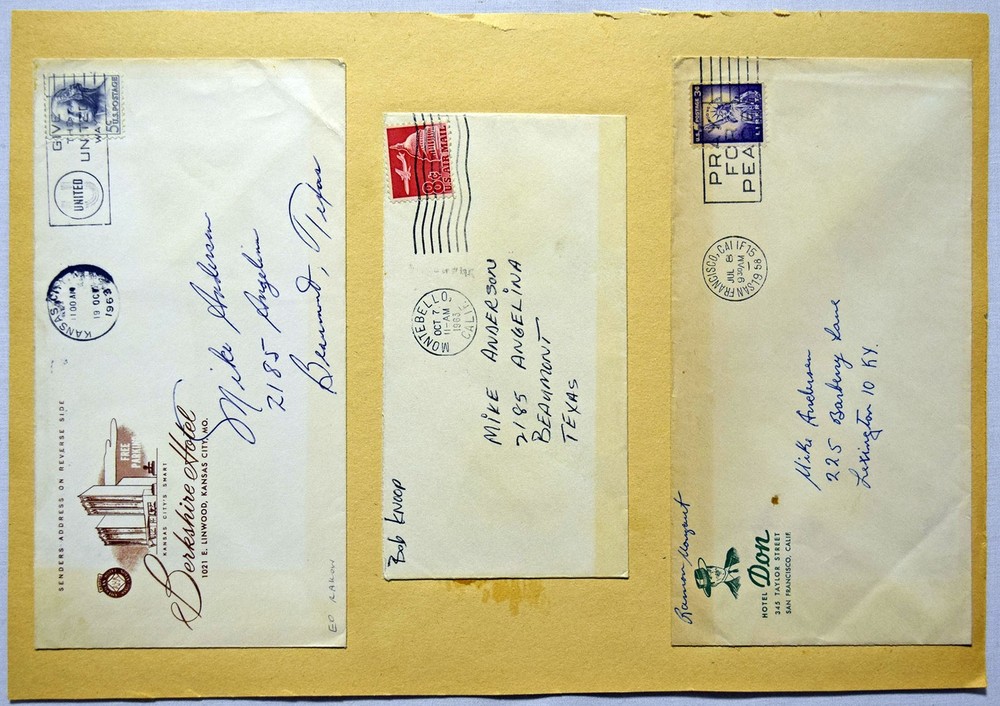 GIVE
UNITED
5¢
U.S. POSTAGE
UNITED
KANSAS
11 00 AM
19 OCT
1963
Mike Anderson
2185 Angelina
Beaumont, Texas
SENDERS ADDRESS ON REVERSE SIDE
FREE
KANSAS CITY'S SMART
Berkshire Hotel
1021 E. LINWOOD, KANSAS CITY, MO.
8¢
U.S. AIR MAIL
MONTEBELLO,
CALIF.
OCT 7
11-AM
1963
MIKE ANDERSON
2185 ANGELINA
BEAUMONT
TEXAS
Bob KNOOP
U.S. POSTAGE 3¢
LIBERTY
PRAY
FOR
PEA
SAN FRANCISCO, CALIF 15
JUL 8
9 30 AM
1958
Mike Andersen
225 Barberry Lane
Lexington 10 KY.
Ramon
HOTEL Don
345 TAYLOR STREET
SAN FRANCISCO, CALIF.